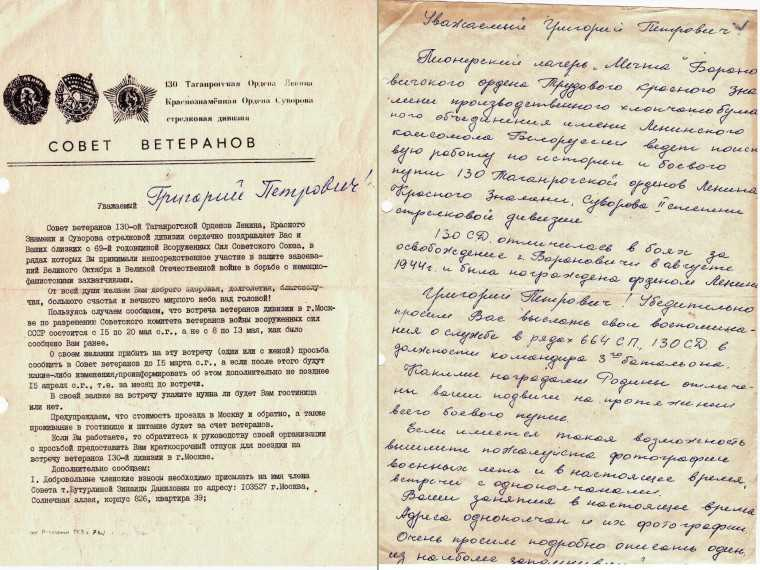 130 Таганрогская Ордена Ленина
Краснознамённая Ордена Суворова
стрелковая дивизия
СОВЕТ ВЕТЕРАНОВ
Уважаемый Григорий Петрович!
Совет ветеранов 130-ой Таганрогской Орденов Ленина, Красного
Знамени и Суворова стрелковой дивизии сердечно поздравляет Вас и
Ваших близких с 69-й годовщиной Вооруженных Сил Советского Союза, в
рядах которых Вы принимали непосредственное участие в защите завоева-
ний Великого Октября в Великой Отечественной войне в борьбе с немецко-
фашистскими захватчиками.
От всей души желаем Вам доброго здоровья, долголетия, благополу-
чия, большого счастья и вечного мирного неба над головой!
Пользуясь случаем сообщаем, что встреча ветеранов дивизии в г.Моск-
ве по разрешению Советского комитета ветеранов войны вооруженных сил
СССР состоится с 15 по 20 мая с.г., а не с 8 по 13 мая, как было
сообщено Вам ранее.
О своем желании прибыть на эту встречу (один или с женой) просьба
сообщить в Совет ветеранов до 15 марта с.г., а если после этого будут
какие-либо изменения, проинформировать об этом дополнительно не позднее
15 апреля с.г., т.е. за месяц до встречи.
В своей заявке на встречу укажите нужна ли будет Вам гостиница
или нет.
Предупреждаем, что стоимость проезда в Москву и обратно, а также
проживание в гостинице и питание будет за счет ветеранов.
Если Вы работаете, то обратитесь к руководству своей организации
с просьбой предоставить Вам краткосрочный отпуск для поездки на
встречу ветеранов 130-й дивизии в г.Москве.
Дополнительно сообщаем:
1. Добровольные членские взносы необходимо присылать на имя члена
Совета т.Бутурлиной Зинаиды Даниловны по адресу: 103527 г.Москва,
Солнечная аллея, корпус 826, квартира 39;
Уважаемый Григорий Петрович
Пионерский лагерь „Мечта" Барано
вичского ордена Трудового Красного Зна
мени производственного хлопчатобума
ного объединения имени Ленинского
комсомола Белоруссии ведет поиско
вую работу по истории и боевого
пути 130 Таганрогской орденов Ленина
Красного Знамени, Суворова II степени
стрелковой дивизии
130 СД. отличилась в боях за
освобождение г. Барановичи в августе
1944г. и была награждена орденом Ленина
Григорий Петрович! Убедительно
просим Вас выслать свои воспомина-
ния о службе в рядах 664 С.П., 130 С.Д. в
должности командира 3го батальона.
Какими наградами Родины отмече-
ны ваши подвиги на протяжении
всего боевого пути.
Если имеется такая возможность
вышлите пожалуйста фотографии
военных лет и в настоящее время,
встречи с однополчанами.
Ваши занятия в настоящее время
Адреса однополчан и их фотографии.
Очень просим подробно описать один
из наиболее